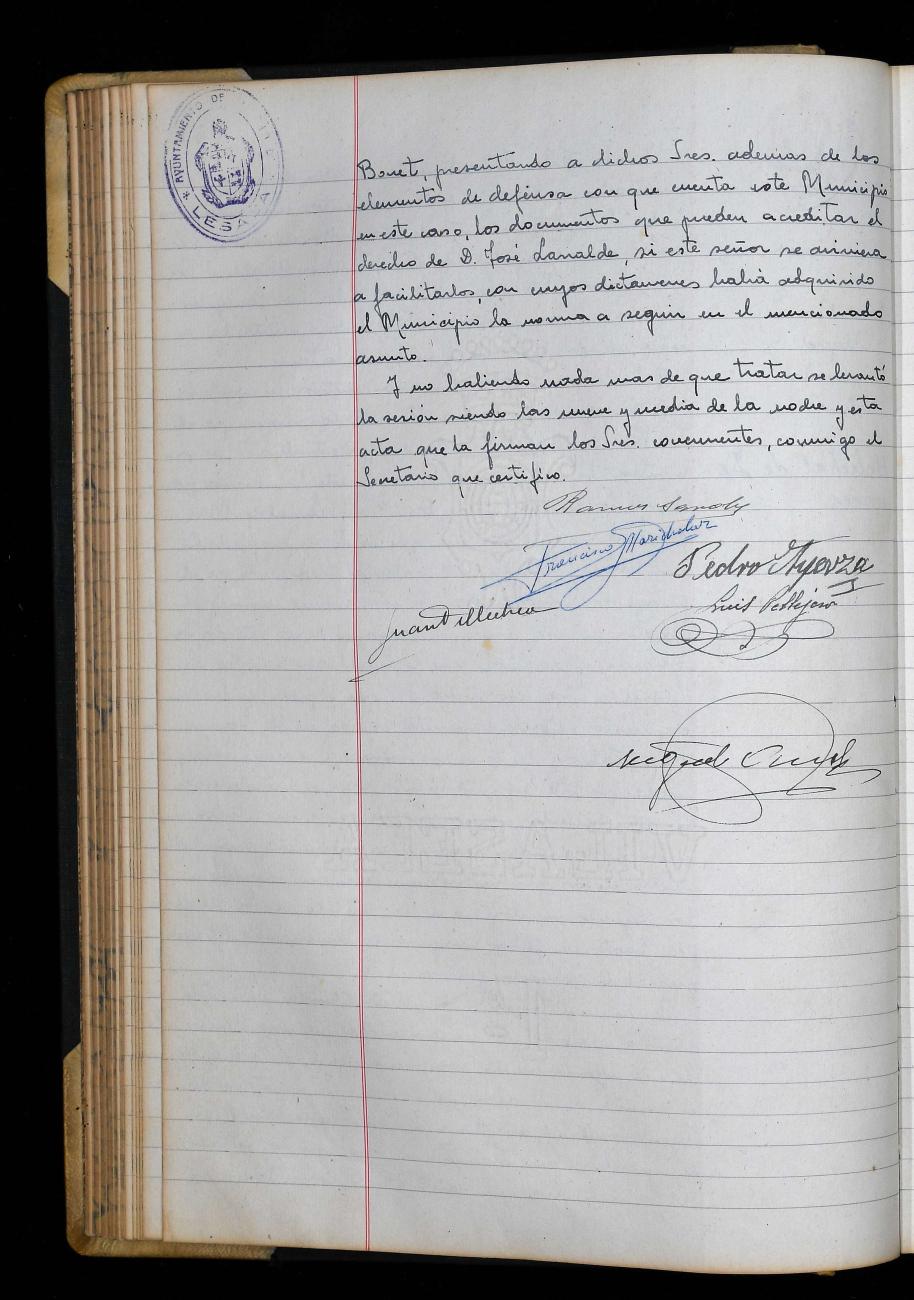 AYUNTAMIENTO DE
LESACA
Bonet, presentando a dichos Sres. ademas de los
elementos de defensa con que cuenta este Municipio
en este caso, los documentos que pueden acreditar el
derecho de D. José Larralde, si este señor se aviniera
a facilitarlos, con cuyos dictamenes habrá adquirido
el Municipio la norma a seguir en el mencionado
asunto.
Y no habiendo nada mas de que tratar se levantó
la sesión siendo las nueve y media de la noche y esta
acta que la firman los Sres. concurrentes, conmigo el
Secretario que certifico.
Ramon
Francisco Marichalar
Pedro Oyarza
Luis Pellejero
Juan
Miguel